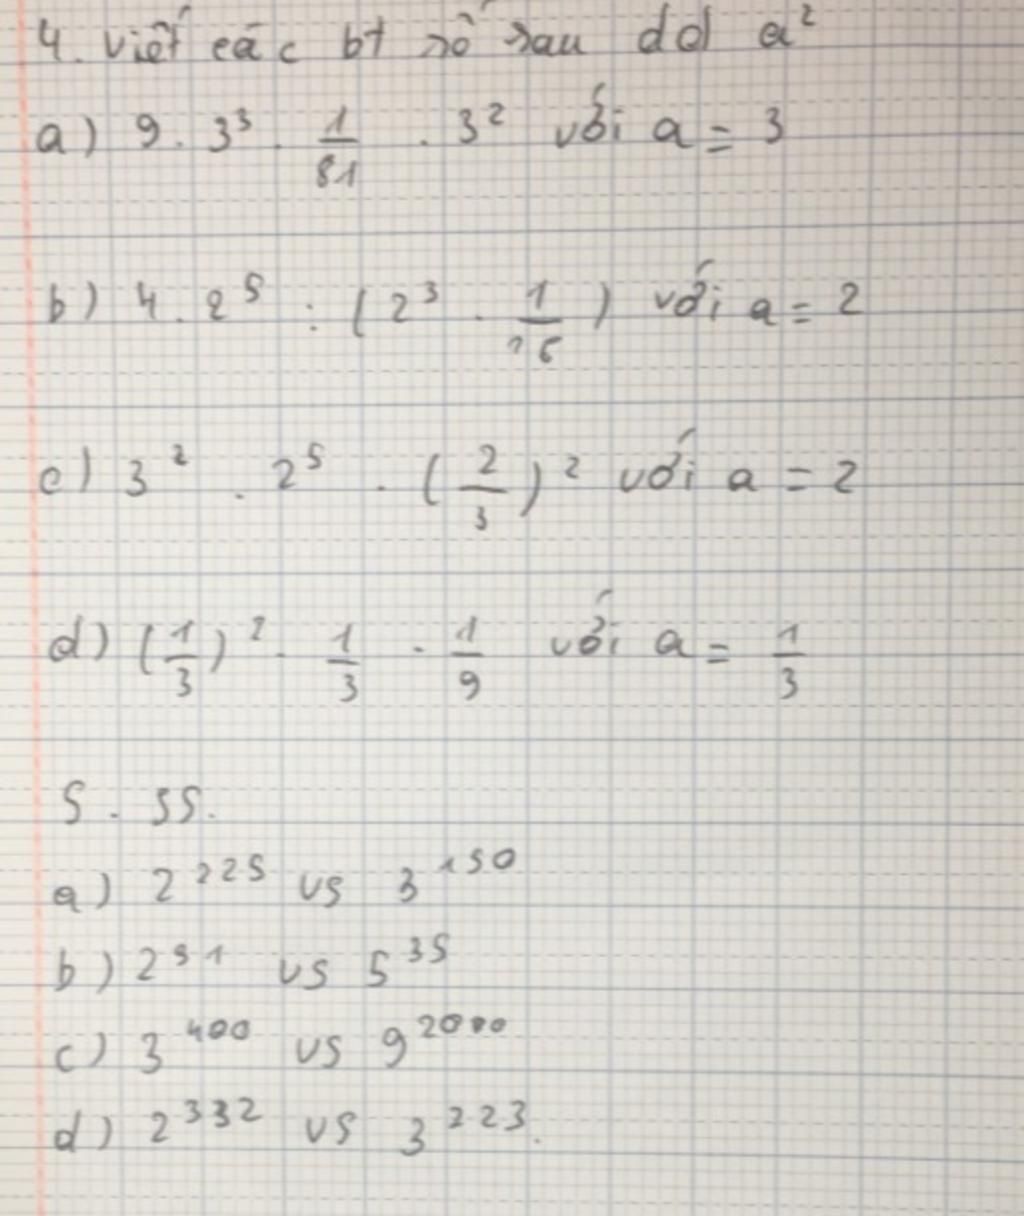 4. Viết các bt số sau dd a²
a) 9 . 3³ . 1/81 . 3² với a = 3
b) 4 . 2⁵ : (2³ . 1/16) với a = 2
c) 3² . 2⁵ . (2/3)² với a = 2
d) (1/3)² . 1/3 . 1/9 với a = 1/3
5. SS.
a) 2²²⁵ vs 3¹⁵⁰
b) 2⁹¹ vs 5³⁵
c) 3⁴⁰⁰ vs 9²⁰⁰⁰
d) 2³³² vs 3²²³.